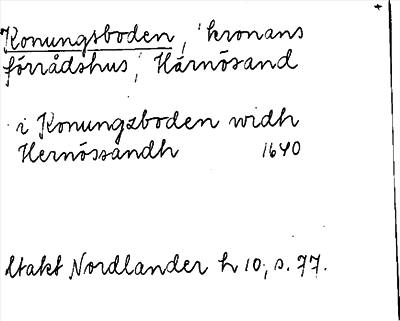 Konungsboden, 'kronans
förrådshus', Härnösand
i Konungzboden widh
Hernössandh 1640
Utakt Nordlander h 10, s. 77.